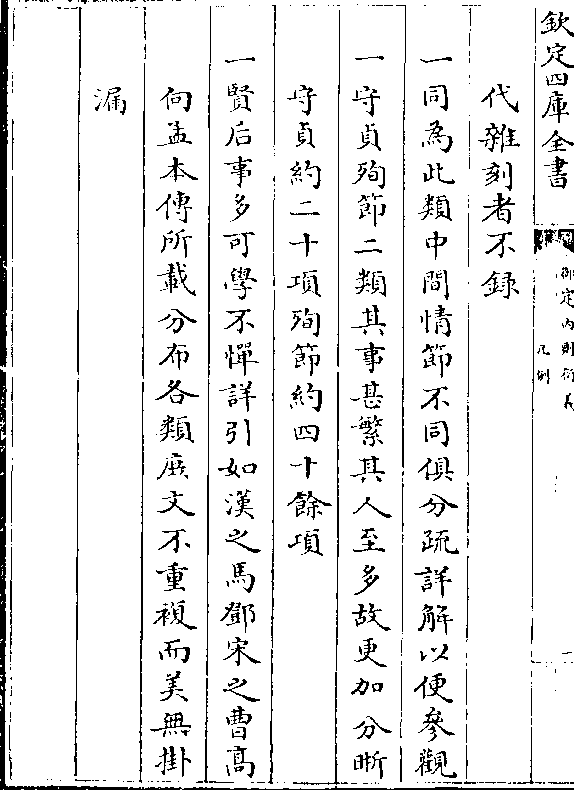 欽定四庫全書
御定內則衍義
凡例
代雜刻者不錄
一同為此類中間情節不同俱分疏詳解以便參觀
一守貞殉節二類其事甚繁其人至多故更加分晰
守貞約二十項殉節約四十餘項
一賢后事多可學不憚詳引如漢之馬鄧宋之曹高
向孟本傳所載分布各類庶文不重複而美無掛
漏